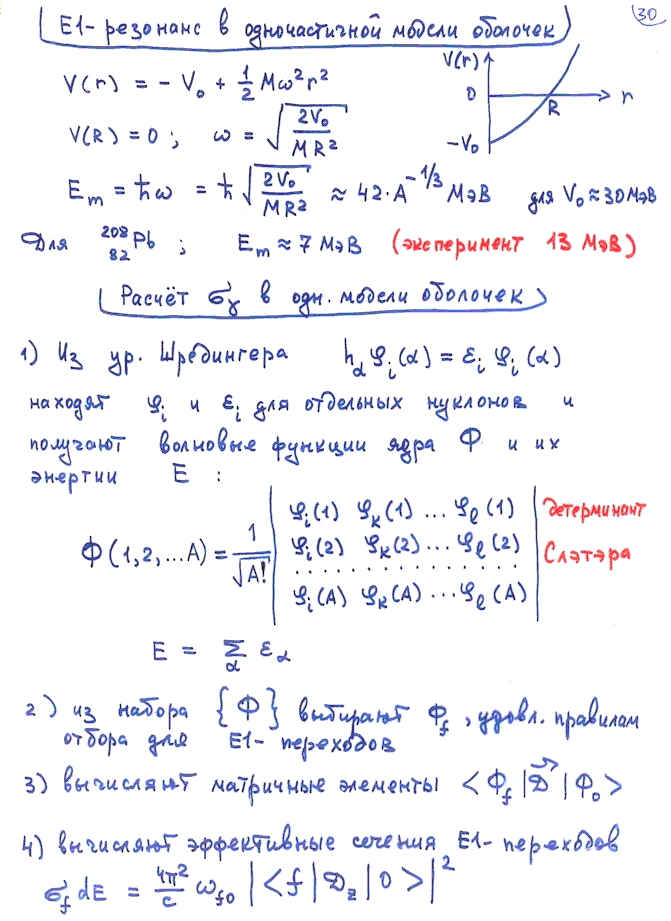 30
E1-резонанс в одночастичной модели оболочек
V(r) = - V₀ + 1/2 Mω²r²
V(r)
0
r
R
-V₀
V(R) = 0 ; ω = √(2V₀/MR²)
Eₘ = ħω = ħ √(2V₀/MR²) ≈ 42·A^(-1/3) МэВ для V₀ ≈ 30 МэВ
Для ²⁰⁸₈₂Pb ; Eₘ ≈ 7 МэВ (эксперимент 13 МэВ)
Расчёт σ_γ в одн. модели оболочек
1) Из ур. Шредингера h_α φᵢ(α) = εᵢ φᵢ(α)
находят φᵢ и εᵢ для отдельных нуклонов и
получают волновые функции ядра Φ и их
энергии E :
φᵢ(1) φₖ(1) ... φ_ℓ(1) детерминант
Φ(1,2,...A) = 1/√A! φᵢ(2) φₖ(2) ... φ_ℓ(2) Слэтэра
. . . . . . . . . . . . . . .
φᵢ(A) φₖ(A) ... φ_ℓ(A)
E = Σ_α ε_α
2) из набора {Φ} выбирают Φ_f , удовл. правилам
отбора для E1- переходов
3) вычисляют матричные элементы <Φ_f | D⃗ | Φ₀>
4) вычисляют эффективные сечения E1- переходов
σ_f dE = 4π²/c ω_f0 |<f | D_z | 0>|²